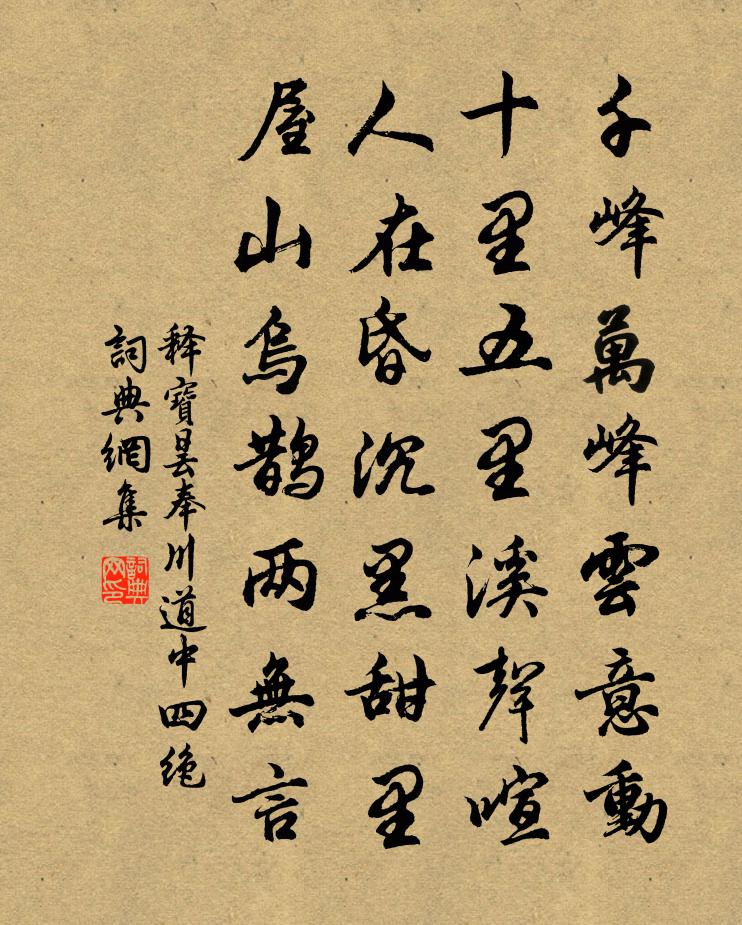 千峰萬峰雲意動
十里五里溪聲喧
人在昏沉黑甜里
屋山烏鵲两無言
释寶曇奉川道中四绝
詞典網集
詞典網印